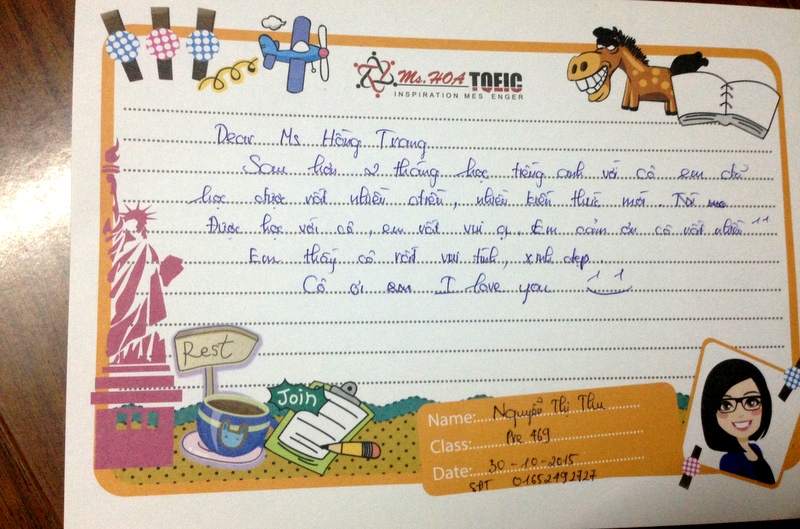 Ms. HOA TOEIC
INSPIRATION MES ENGER
Dear Ms Hồng Trang
Sau hơn 2 tháng học tiếng anh với cô em đã
học được rất nhiều điều, nhiều kiến thức mới.
Được học với cô, em rất vui ạ. Em cảm ơn cô rất nhiều ^^
Em thấy cô rất vui tính, xinh đẹp
Cô ơi em I love you
Rest
Join
Name: Nguyễn Thị Thu
Class: Pre 469
Date: 30-10-2015
SĐT 01652492727